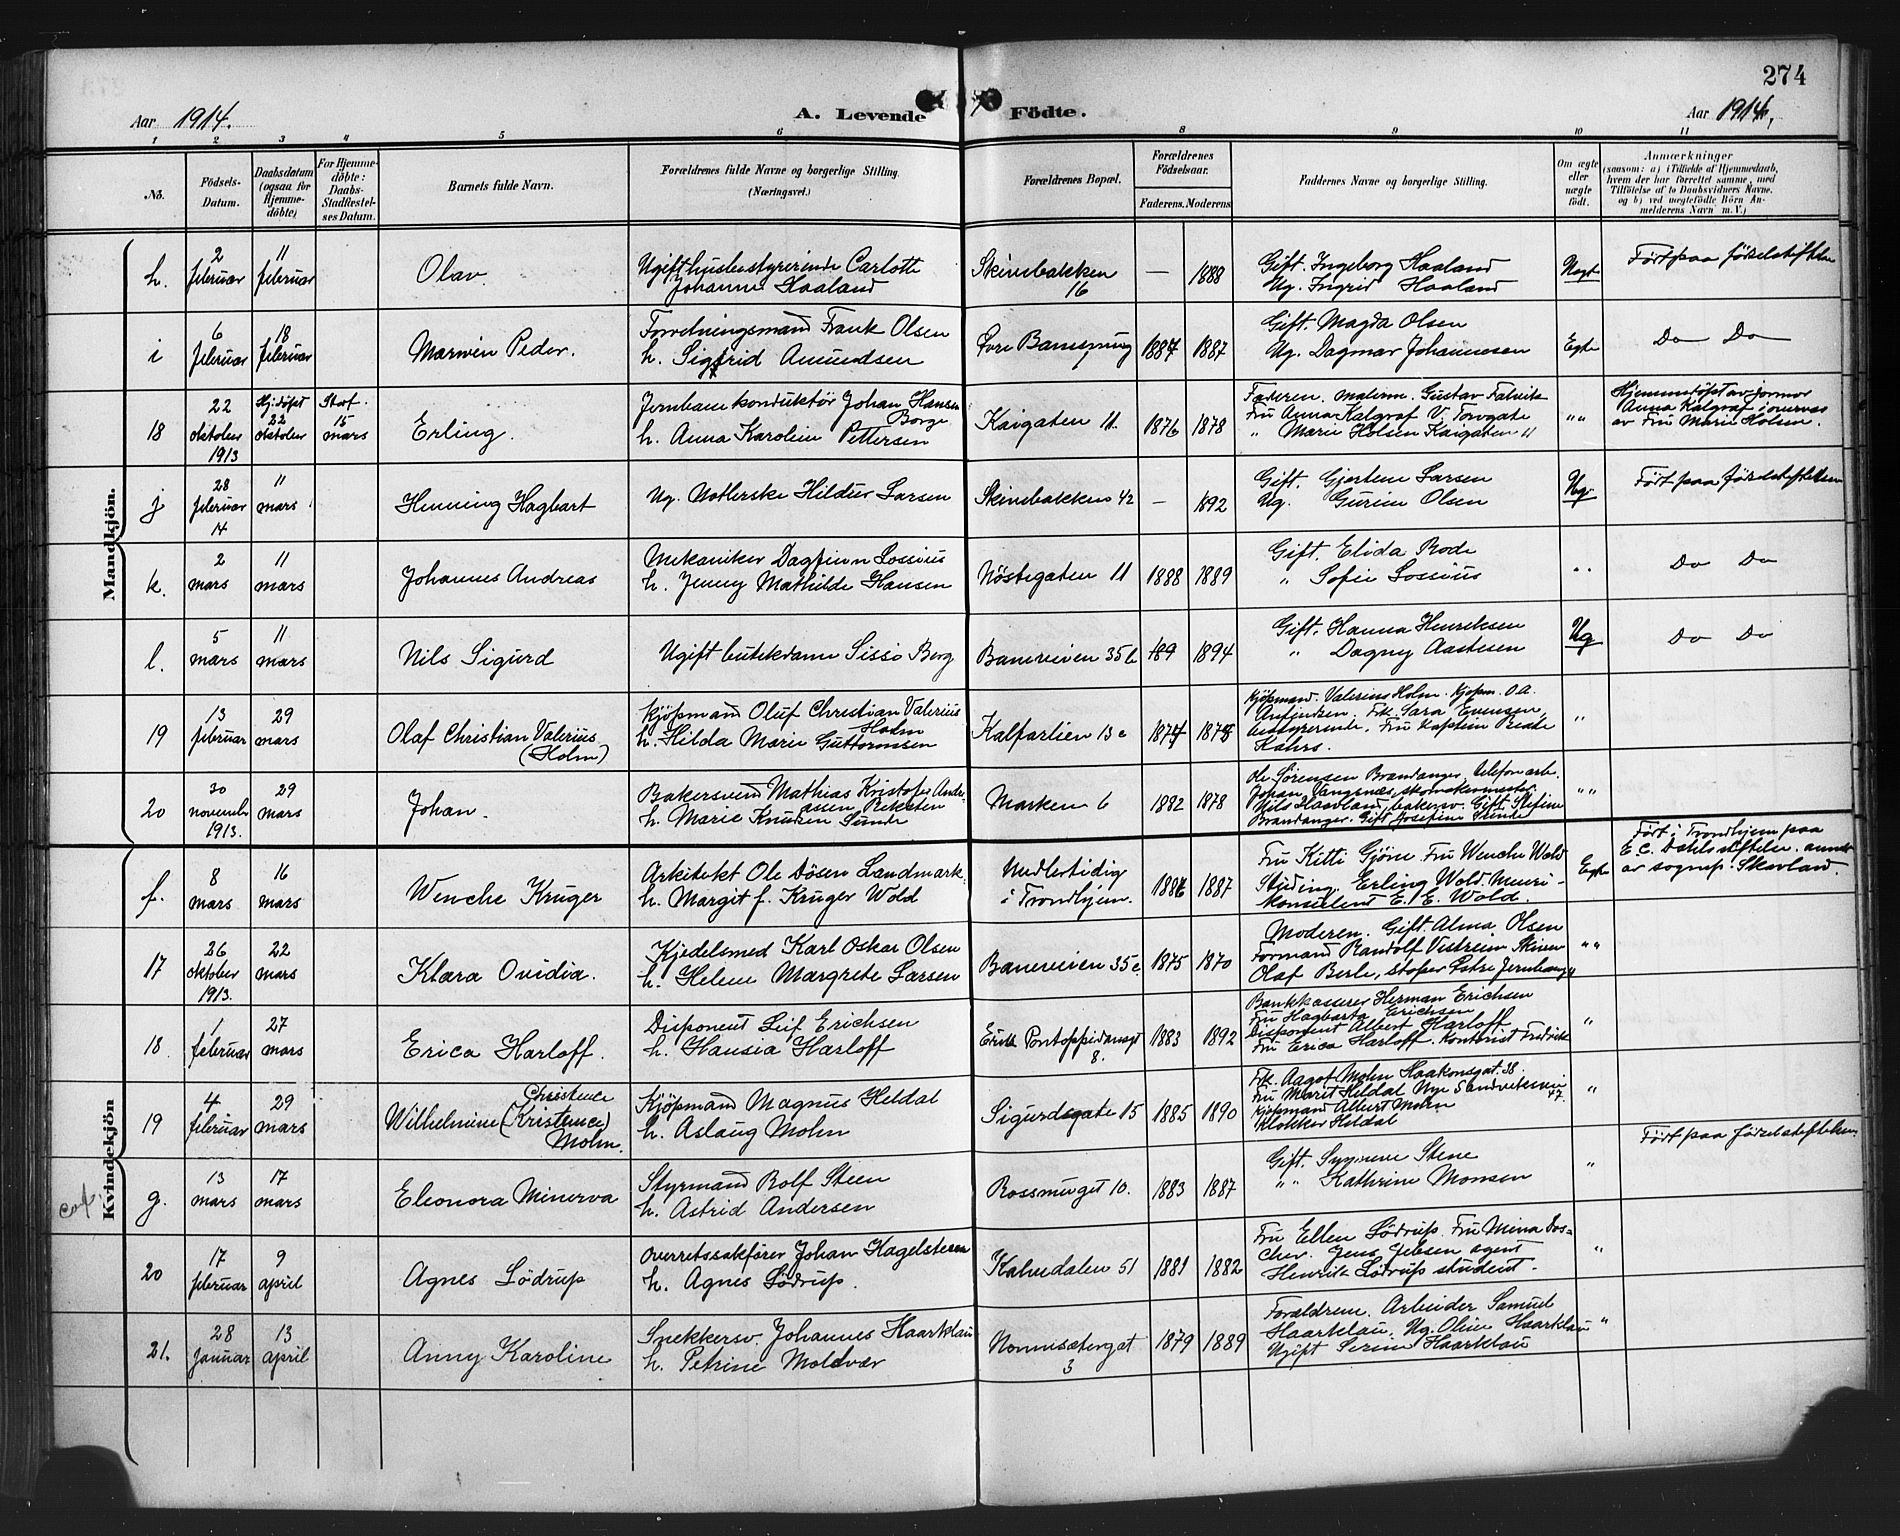 274
Aar 1914.
A. Levende Födte.
Aar 1914,
1 2 3 4 5 6 8 9 10 11
No.
Födsels-Datum.
Daabsdatum (ogsaa for Hjemme-döbte)
For Hjemme-döbte: Daabs-Stadfæstel-ses Datum.
Barnets fulde Navn.
Forældrenes fulde Navne og borgerlige Stilling. (Næringsvei.)
Forældrenes Bopæl.
Forældrenes Födselsaar.
Faderens. Moderens
Faddernes Navne og borgerlige Stilling.
Om ægte eller uægte födt.
Anmærkninger
(saasom: a) i Tilfælde af Hjemmedaab, hvem der har forrettet samme, med Tilföielse af to Daabsvidners Navne, og b) ved uegtefödte Börn An-melderens Navn m. V.)
Mandkjön.
h. 2 februar 11 februar Olav. Ugift husbestyrerinde Carlotte Johanne Haaland Skivebakken 16 — 1888 Gift. Ingeborg Haaland Ug. Ingrid Haaland UegtFørt paa fødselsstiftelsen
i 6 februar 18 februar Marwin Peder. Forretningsmand Frank Olsen h. Sigfrid Amundsen Øvre 1887 1887 Gift. Magda Olsen Ug. Dagmar Johannesen Egte Do Do
18 22 oktober 1913 Hj.döpt 22 oktober Staf. 15 mars Erling. Jernbanekonduktör Johan Hansen Borge h. Anna Karoline Pettersen Kaigaten 11. 1876 1878 Faderen. Gustav Fru Anna Kalgraf V. Torvgate " Marie Holsen Kaigaten 11 " " Hjemmedöpt av jormor Anna Kalgraf i nærvær av Fru Marie Holsen.
j 28 februar 14 11 mars Henning Hagbart Ug. Hildur Larsen Skivebakken 42 — 1892 Gift. Gjertine Larsen Ug. Gurine Olsen Ug.Ført paa fødselsstiftelsen
k. 2 mars 11 mars Johannes Andreas Mekaniker Dagfinn Lossius h. Jenny Mathilde Hansen Nöstegaten 11 1888 1889 Gift. Elida Rode " Sofie Lossius " " Do Do
l. 5 mars 11 mars Nils Sigurd Ugift butikdame Sisso Berg Baneveien 35 b 189 1894 Gift. Hanna Henriksen " Dagny Aastesen Ug Do Do
19 13 februar 29 mars Olaf Christian Valerius (Holm) Kjöpmand Oluf Christian Valerius Holm h. Hilda Marie Guttormsen Kalfarlien 13 c 1874 1878 Kjöpmand Valerius Holm. Kjøpm. O.A. Frk. Sara Evensen, bestyrerinde. Fru kaptein Kahrs. "
20 30 november 1913. 29 mars Johan. Bakersvend Mathias Kristofer Andreassen h. Marie Knudsen Sunde Marken 6 1882 1878 Ole Sørensen Brandanger, telefonarb. Johan Vangsnæs, skomakermester. Nils Haavland, bakersv. Gift Brandanger. Gift Josefine Sunde " "
Kvindekjön
f. 8 mars 16 mars Wenche Krüger Arkitekt Ole Dösen Landmark h. Margit f. Krüger Wold Midlertidig i Trondhjem. 1886 1887 Fru Kitti Gjöne. Fru Wenche Wold Erling Wold. Meieri-konsulent E. E. Wold. Egte Født i Trondhjem paa E. C. Dahls stiftelse. anmeldt av sognepr. Skavland.
17 26 oktober 1913. 22 mars Klara Ovidia. Kjedelsmed Karl Oskar Olsen h. Helene Margrete Larsen Baneveien 35 c. 1875 1870 Moderen. Gift Alma Olsen Formand Randolf Olaf Berle, " "
18 1 februar 27 mars Erica Harloff. Disponent Leif Erichsen h. Hansia Harloff Erik Pontoppidansgt 8. 1883 1892 Bankkasserer Herman Erichsen Fru Hagbarta Erichsen Disponent Albert Harloff Fru Erica Harloff. Kontorist Fredrik "
19 4 februar 29 mars Wilhelmine Christence (Kristence) Mohn. Kjöpmand Magnus Heldal h. Aslaug Mohn Sigurdsgate 15 1885 1890 Frk. Aagot Mohn Haakonsgat. 38 Fru Marit Heldal Nye Sandviksvei 47. Kjøpmand Albert Mohn Klokker Heldal "
g. 13 mars 17 mars Eleonora Minerva Styrmand Rolf Steen h. Astrid Andersen Rosesmuget 10. 1883 1887 Gift. Synneve Stene " " Kathrine Monsen "Ført paa fødselsstiftelsen
20 17 februar 9 april Agnes Lödrup Overretssakfører Johan Hagelsteen h. Agnes Lödrup. Kalvedalen 51 1881 1882 Fru Ellen Lödrup. Fru Mina Dos-cher. Jens Jebsen agent Henrik Lödrup student. "
21. 28 januar 13 april Anny Karoline Snekkersv. Johannes Haarklau h. Petrine Moldvær Nonnesætergat 3 1879 1889 Forældrene. Arbeider Samuel Haarklau. Ug. Oline Haarklau Ugift Serine Haarklau "